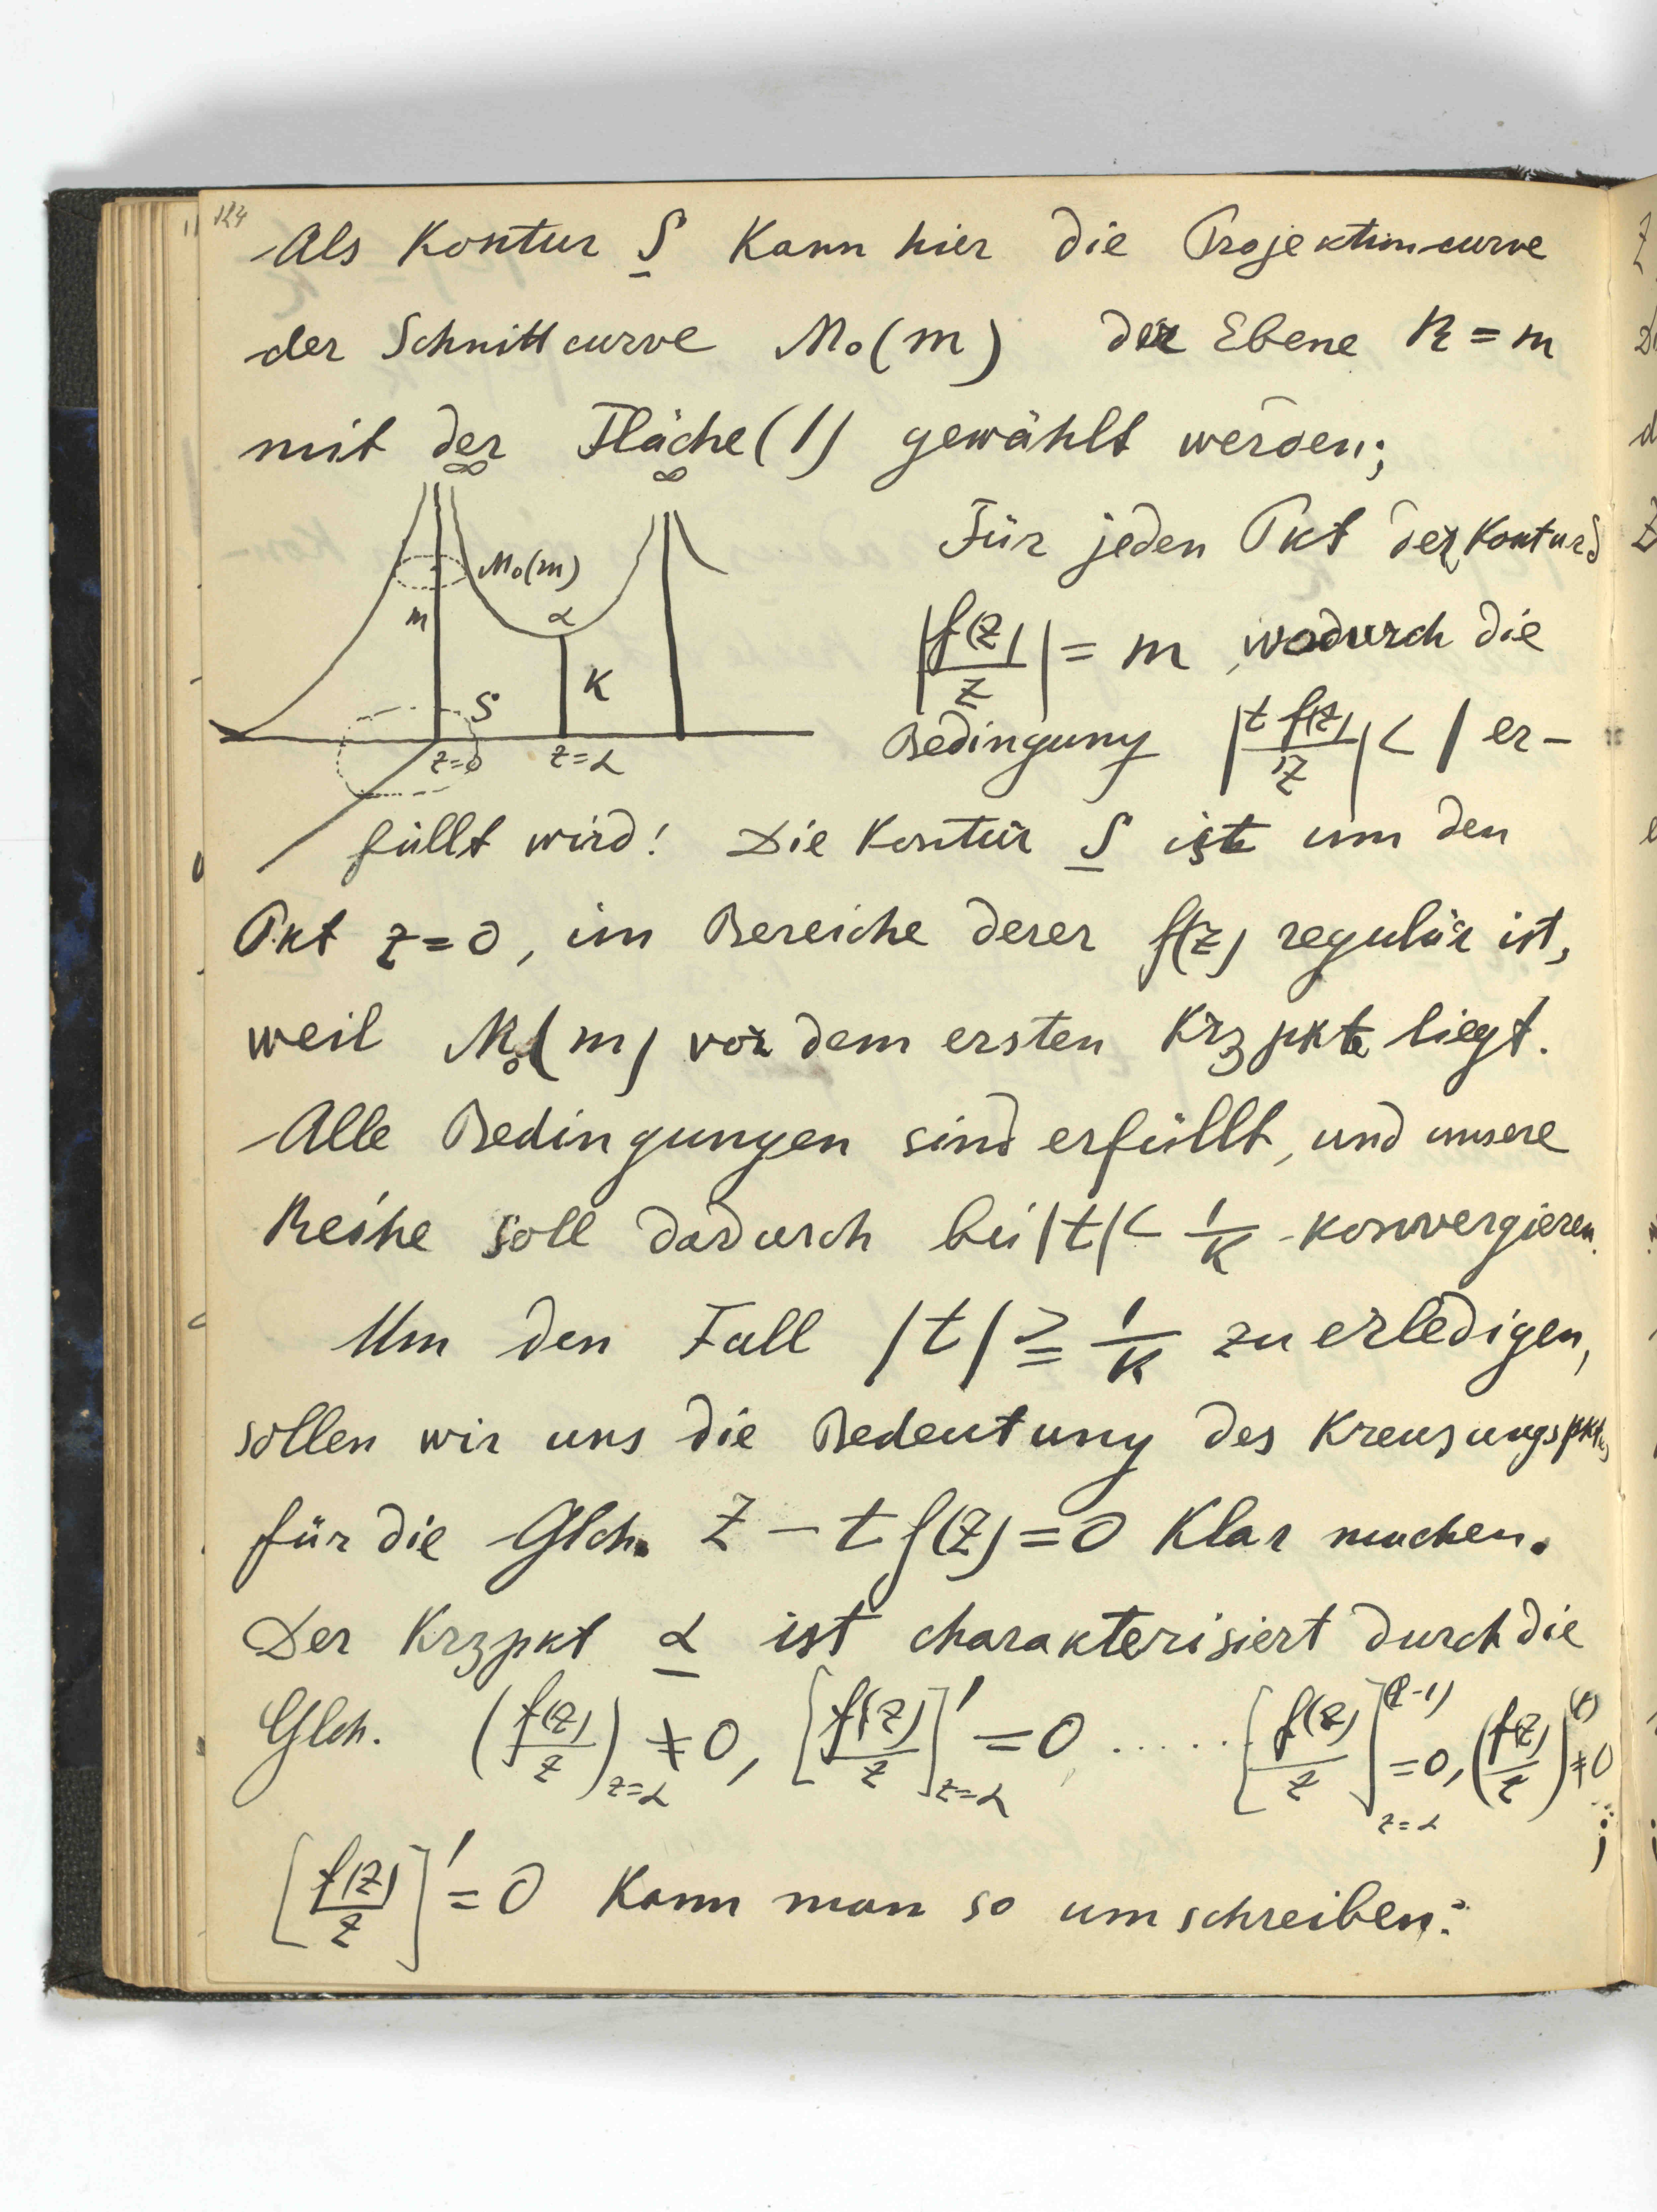 124
Als Kontur S kann hier die Projektionscurve
der Schnittcurve M₀(m) der Ebene R = m
mit der Fläche (1) gewählt werden;
∞ ∞
M₀(m)
m
α
K
S
z=0 z=α
Für jeden Pkt der Kontur S
|f(z)/z| = m, wodurch die
Bedingung |t f(z)/z| < 1 er-
füllt wird! Die Kontur S ist um den
Pkt z=0, im Bereiche derer f(z) regulär ist,
weil M₀(m) vor dem ersten Krzpkte liegt.
Alle Bedingungen sind erfüllt, und unsere
Reihe soll dadurch bei |t| < 1/K konvergieren.
Um den Fall |t| ≧ 1/K zu erledigen,
sollen wir uns die Bedeutung des Kreuzungspkts
für die Glch. z − t f(z) = 0 klar machen.
Der Krzpkt α ist charakterisiert durch die
Glch. (f(z)/z)_{z=α} ≠ 0, [f(z)/z]'_{z=α} = 0 ..... [f(z)/z]^{(l-1)}_{z=α} = 0, (f(z)/z)^{(l)} ≠ 0;
[f(z)/z]' = 0 kann man so umschreiben: